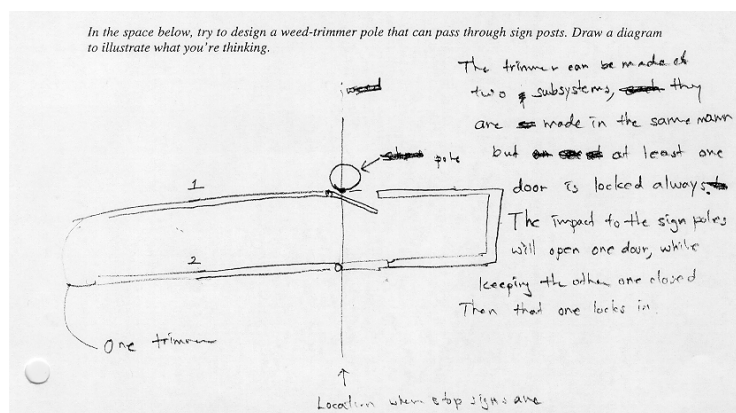 In the space below, try to design a weed-trimmer pole that can pass through sign posts. Draw a diagram
to illustrate what you're thinking.
The trimmer can be made of
two subsystems, they
are made in the same mann
but at least one
door is locked always
The impact to the sign poles
will open one door, while
keeping the other one closed
Then that one locks in.
pole
1
2
One trimmer
Location where stop signs are